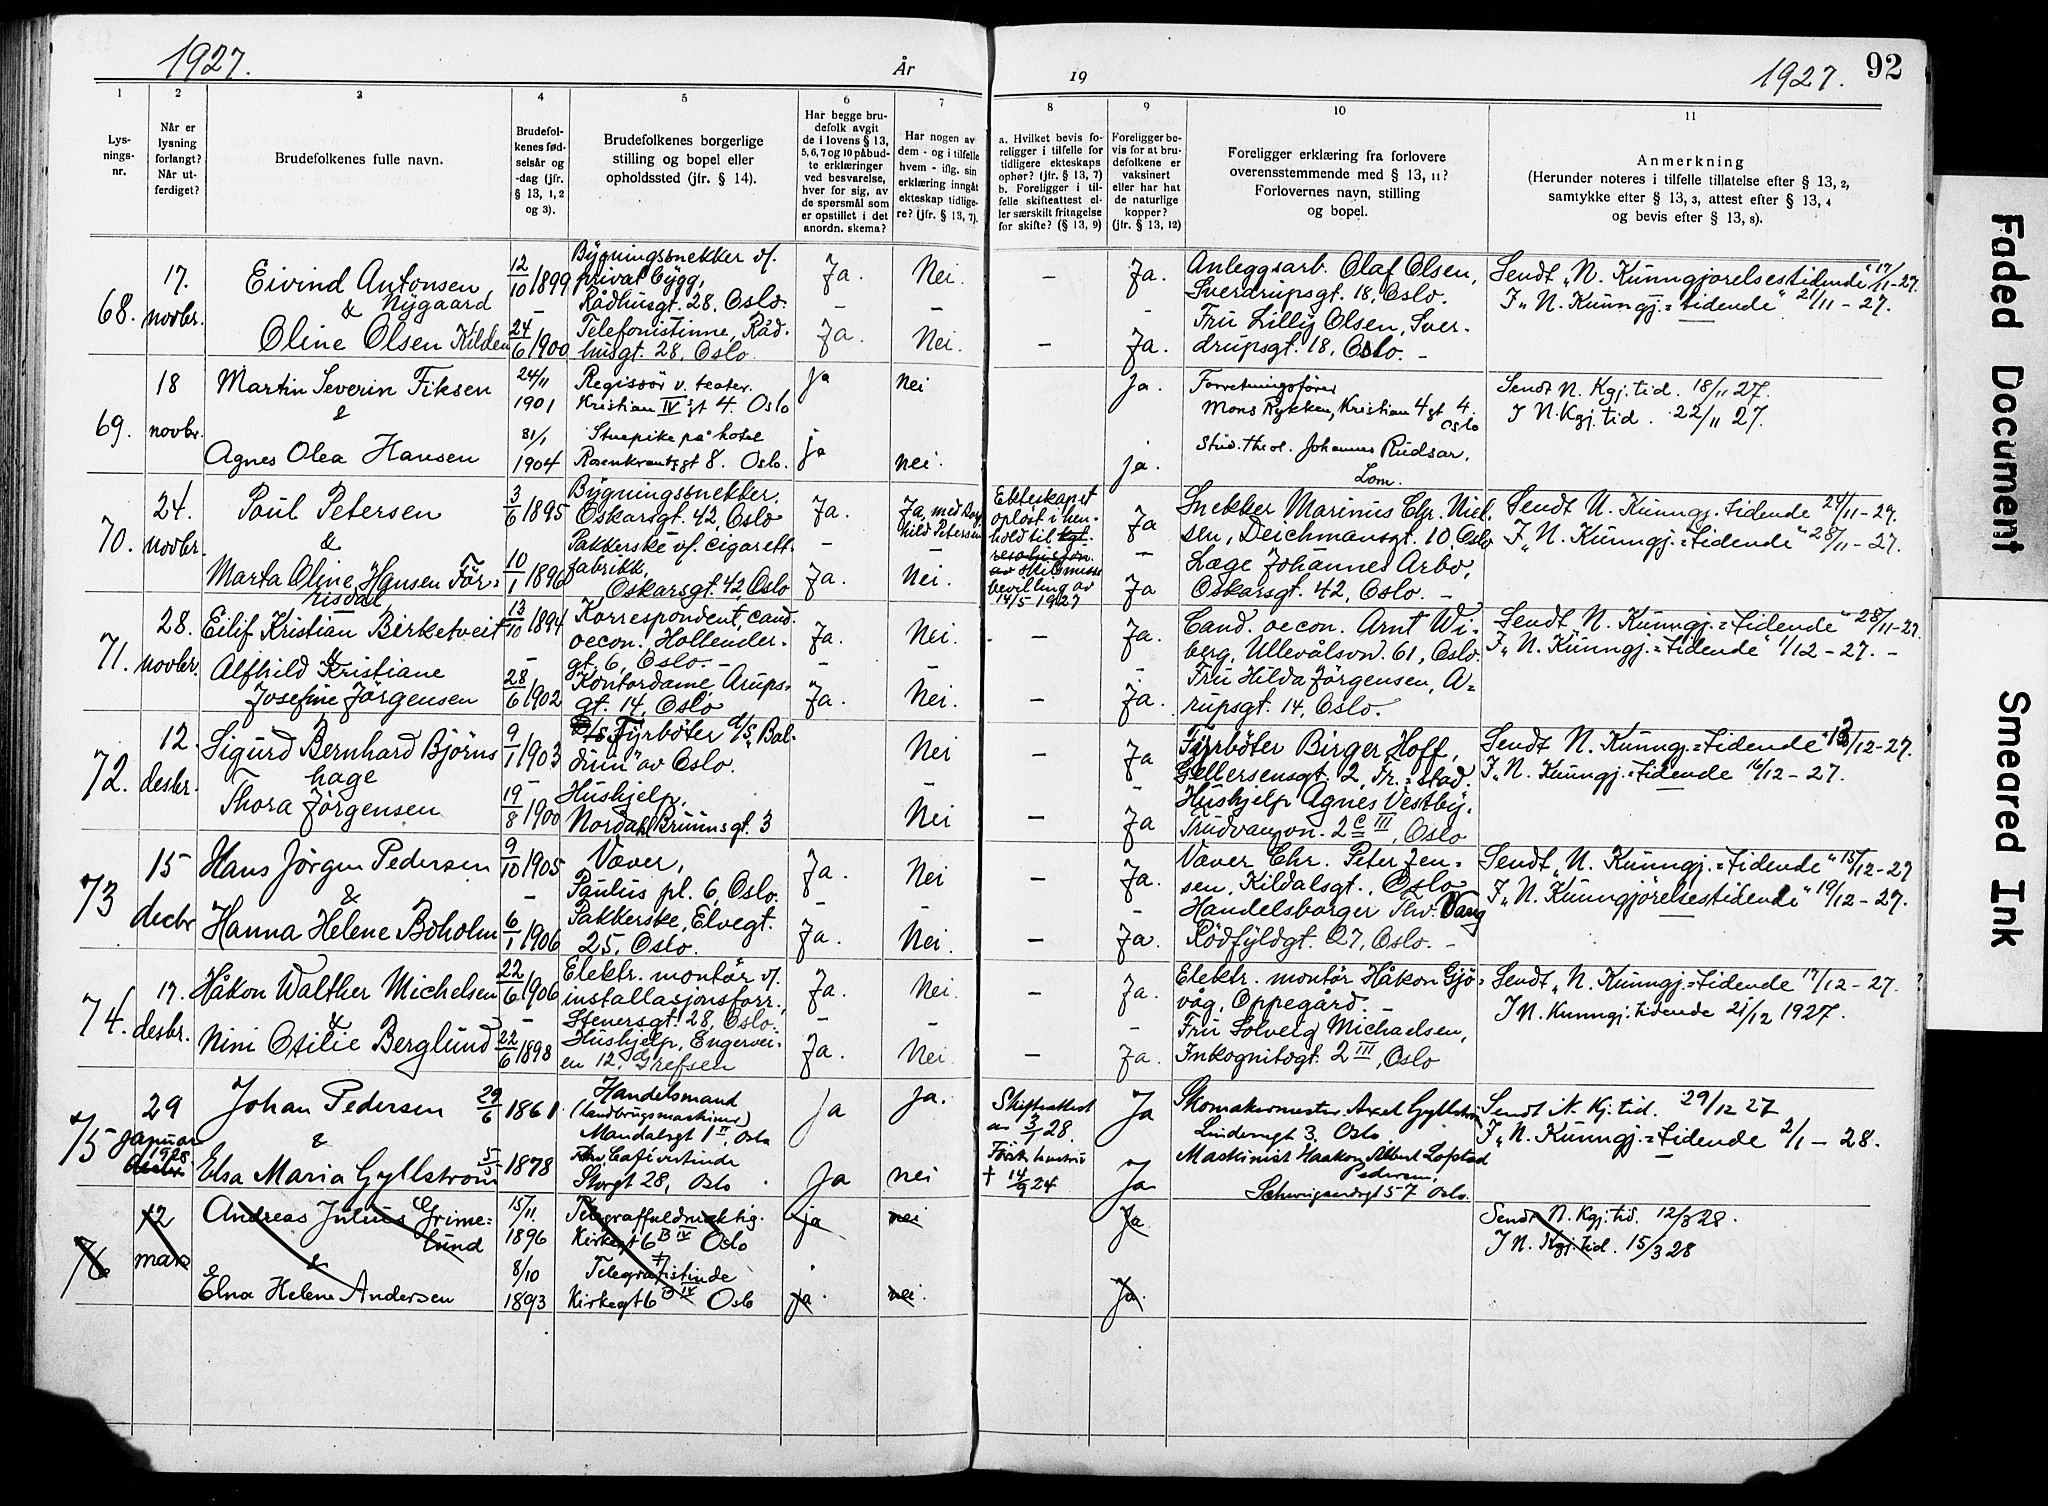 1927.
År
19
1927.
92
1
2
3
4
5
6
7
8
9
10
11
Lys-
nings-
nr.
Når er
lysning
forlangt?
Når ut-
ferdiget?
Brudefolkenes fulle navn.
Brudefol-
kenes fød-
selsår og
-dag (jfr.
§ 13, 1, 2
og 3).
Brudefolkenes borgerlige
stilling og bopel eller
opholdssted (jfr. § 14).
Har begge bru-
defolk avgit
de i lovens § 13,
5, 6, 7 og 10 påbud-
te erklæringer
ved besvarelse,
hver for sig, av
de spørsmål som
er opstillet i det
anordn. skema?
Har nogen av
dem - og i tilfelle
hvem - iflg. sin
erklæring inngåt
ekteskap tidlige-
re? (jfr. § 13, 7).
a. Hvilket bevis fo-
religger i tilfelle for
tidligere ekteskaps
ophør? (jfr. § 13, 7)
b. Foreligger i til-
felle skifteattest el-
ler særskilt fritagelse
for skifte? (§ 13, 9)
Foreligger be-
vis for at bru-
defolkene er
vaksinert
eller har hat
de naturlige
kopper?
(jfr. § 13, 12)
Foreligger erklæring fra forlovere
overensstemmende med § 13, 11?
Forlovernes navn, stilling
og bopel.
Anmerkning
(Herunder noteres i tilfelle tillatelse efter § 13, 2,
samtykke efter § 13, 3, attest efter § 13, 4
og bevis efter § 13, 8).
68.
17.
novbr.
Eivind Antonsen
Nygaard
&
Oline Olsen Kilden
12/10 1899
24/6 1900
Bygningssnekker v/.
privat bygg,
Rådhusgt. 28, Oslo.
Telefonistinne, Råd-
husgt. 28, Oslo.
Ja.
Ja.
Nei.
Nei.
Ja.
Ja.
Anleggsarb. Olaf Olsen,
Sverdrupsgt. 18, Oslo.
Fru Lilly Olsen, Sver-
drupsgt. 18, Oslo.
Sendt „N. Kunngjørelsestidende" 17/11-27.
I „N. Kunngj.=tidende" 21/11-27.
69.
18
novbr.
Martin Severin Fiksen
&
Agnes Olea Hansen
24/11
1901
31/1
1904
Regissör v. teater.
Kristian IV gt 4. Oslo
Stuepike på hotel
Rosenkrantzgt 8. Oslo.
ja
ja
nei
nei.
ja.
ja.
Forretningsfører
Mons Rykken, Kristian 4 gt 4.
Oslo
Stud. theol. Johannes Rudsar,
Lom.
Sendt N. Kgj. tid. 18/11 27.
I N. Kgj. tid. 22/11 27.
70.
24.
novbr.
Poul Petersen
&
Marta Oline Hansen Før-
risdal
3/6 1895
10/1 1896
Bygningssnekker.
Oskarsgt. 42, Oslo
Pakkerske v/. cigarett-
fabrikk,
Oskarsgt. 42, Oslo
Ja.
Ja.
Ja, med Borg-
hild Petersen
Nei.
Ekteskapet
opløst i hen-
hold til kgl.
resolusjon
av skilsmisse
bevilling av
14/5 1927
Ja
Ja
Snekker Marinus Chr. Niel-
sen, Deichmansgt. 10, Oslo
Læge Johannes Arbo,
Oskarsgt. 42, Oslo.
Sendt N. Kunngj. tidende 24/11-27.
I „N. Kunngj.=tidende" 28/11-27.
71.
28.
novbr.
Eilif Kristian Birketveit
&
Alfhild Kristiane
Josefine Jørgensen
13/10 1894
28/6 1902
Korrespondent, cand.
oecon. Hollender-
gt. 6, Oslo.
Kontordame, Arups-
gt. 14, Oslo
Ja.
Ja.
Nei.
Nei.
Ja.
Ja.
Cand. oecon. Arnt Wi-
berg, Ullevålsvn. 61, Oslo.
Fru Hilda Jørgensen, A=
rupsgt. 14, Oslo.
Sendt „N. Kunngj.=tidende" 28/11-27
I „N. Kunngj.=tidende" 1/12-27.
72.
12.
desbr.
Sigurd Bernhard Bjørns
hage
Thora Jørgensen
9/1 1903
19/8 1900
Fyrbøter d/s „Bal-
duin" av Oslo.
Hushjelp,
Nordahl Bruunsgt. 3
Nei
Nei
Ja
Ja
Fyrbøter Birger Hoff,
Gellersensgt. 2, Fr.=stad.
Hushjelp Agnes Vestby,
Trudvangvn. 2 C III, Oslo
Sendt N. Kunngj.=tidende 13/12-27.
I „N. Kunngj.=tidende 16/12-27.
73
15
decbr
Hans Jørgen Pedersen
&
Hanna Helene Boholm
9/10 1905
6/1 1906
Væver,
Paulus pl. 6, Oslo.
Pakkerske, Elvegt.
25, Oslo.
Ja.
Ja.
Nei
Nei.
Ja.
Ja.
Væver Chr. Peter Jen-
sen, Kildalsgt., Oslo
Handelsborger Thv. Vang
Rödfyldgt. 27, Oslo.
Sendt „N. Kunngj.=tidende" 15/12-27
I „N. Kunngjørelsestidende" 19/12-27.
74.
17.
desbr.
Håkon Walther Michelsen
&
Nini Otilie Berglund
22/6 1906
22/6 1898
Elektr. montör v/.
installasjonsforr.,
Stenersgt. 28, Oslo.
Hushjelp, Engervei-
en 12, Grefsen
Ja.
Ja.
Nei.
Nei.
Ja.
Ja.
Elektr. montör Håkon Gjö-
våg, Oppegård.
Fru Solveig Michaelsen,
Inkognitogt. 2 III, Oslo
Sendt „N. Kunngj.=tidende 17/12-27.
I N. Kunngj. tidende 21/12 1927.
75
29
januar
1928
decbr
Johan Pedersen
&
Elsa Maria Gyllstrom
29/6 1861
5/5 1878
Handelsmand
(landbrugsmaskiner)
Mandalsgt 1 II, Oslo
Caféværtinde
Storgt 28, Oslo
Ja
Ja
Ja.
nei
Skifteattest
av 3/1 28.
Første hustru
† 14/9 24
Ja
Ja
Skomakermester Axel Gyllstrøm
Lindernsgt 3. Oslo
Maskinist Haakon Albert Lofstad
Pedersen,
Schweigaardsgt 57 Oslo.
Sendt N. Kj. tid. 29/12 27
I „N. Kunngj.=tidende 2/1-28.
76
12
mars
Andreas Julius Grime=
lund
&
Elna Helene Andersen
15/11
1896
8/10
1893
Telegraffuldmektig.
Kirkegt 6 B IV Oslo
Telegrafistinde
Kirkegt 6 B IV Oslo
ja
ja
nei
nei.
Ja.
Ja.
Sendt N. Kgj. tid. 12/3 28.
I N. Kgj. tid. 15/3 28
Faded Document
Smeared Ink